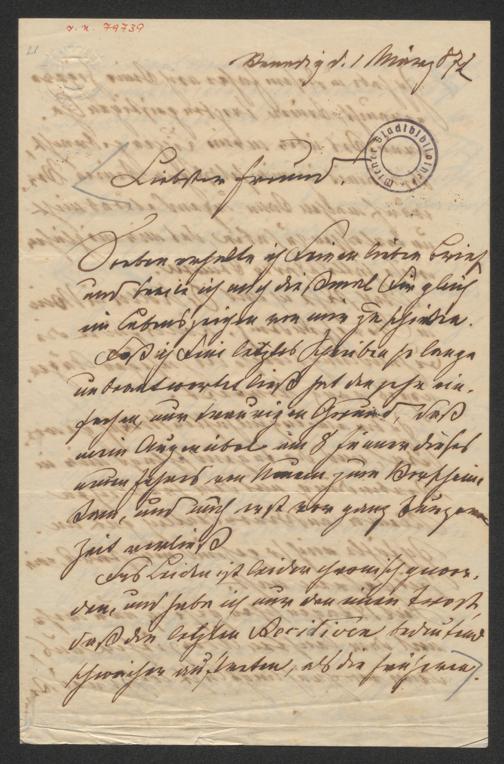 J. N. 79739
21
Venedig d. 1 März 872
Wiener Stadtbibliothek
Liebster Freund.
Soeben erhalte ich Deinen lieben Brief
und beeile ich mich dießmal Dir gleich
ein Lebenszeichen von mir zu schicken.
Daß ich Dein letztes Schreiben so lange
unbeantwortet ließ hat den sehr ein-
fachen, nur traurigen Grund, daß
mein Augenübel im Jänner dieses
Jahres von Neuem zum Vorschein
kam, und mich erst vor ganz kurzer
Zeit verließ
Das Leiden ist leider chronisch gewor-
den, und habe ich nur den einen Trost
daß die letzten Recidiven bedeutend
schwächer auftreten, als die früheren.